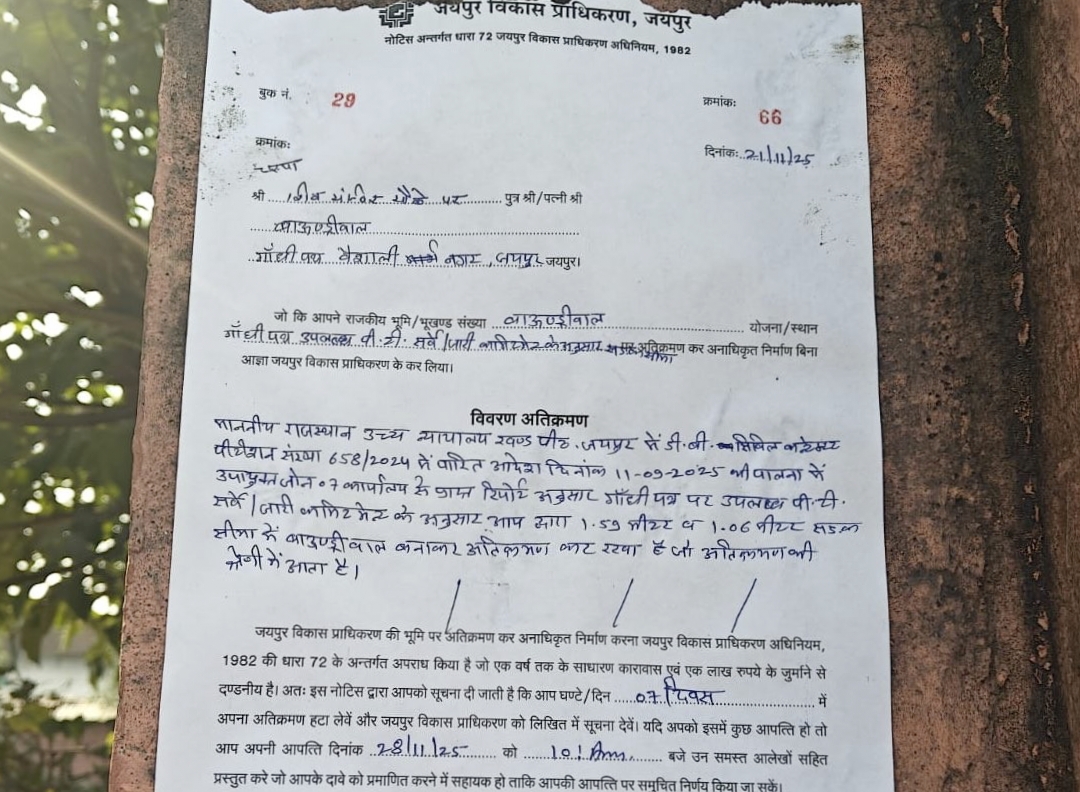 जयपुर विकास प्राधिकरण, जयपुर
नोटिस अन्तर्गत धारा 72 जयपुर विकास प्राधिकरण अधिनियम, 1982
बुक नं. 29
क्रमांकः 66
क्रमांकः
दिनांकः 21/11/25
चस्पा
श्री शिव मंदिर मौके पर पुत्र श्री/पत्नी श्री
बाऊण्ड्रीवाल
गाँधी पथ वैशाली नगर, जयपुर जयपुर।
जो कि आपने राजकीय भूमि/भूखण्ड संख्या बाऊण्ड्रीवाल योजना/स्थान
गाँधी पथ उपलब्ध पी.टी. सर्वे/जारी कमिटमेन्ट के अनुसार अतिक्रमण कर अनाधिकृत निर्माण बिना
आज्ञा जयपुर विकास प्राधिकरण के कर लिया।
विवरण अतिक्रमण
माननीय राजस्थान उच्च न्यायालय खण्ड पीठ, जयपुर में डी.बी. सिविल कन्टेम्पट
पीटीशन संख्या 658/2024 में पारित आदेश दिनांक 11-09-2025 की पालना में
उपायुक्त जोन 07 कार्यालय से प्राप्त रिपोर्ट अनुसार गाँधी पथ पर उपलब्ध पी.टी.
सर्वे/जारी कमिटमेन्ट के अनुसार आप द्वारा 1.59 मीटर व 1.06 मीटर सड़क
सीमा में बाउण्ड्रीवाल बनाकर अतिक्रमण कर रखा है जो अतिक्रमण की
श्रेणी में आता है।
जयपुर विकास प्राधिकरण की भूमि पर अतिक्रमण कर अनाधिकृत निर्माण करना जयपुर विकास प्राधिकरण अधिनियम,
1982 की धारा 72 के अन्तर्गत अपराध किया है जो एक वर्ष तक के साधारण कारावास एवं एक लाख रुपये के जुर्माने से
दण्डनीय है। अतः इस नोटिस द्वारा आपको सूचना दी जाती है कि आप घण्टे/दिन 07 दिवस में
अपना अतिक्रमण हटा लेवें और जयपुर विकास प्राधिकरण को लिखित में सूचना देवें। यदि अपको इसमें कुछ आपत्ति हो तो
आप अपनी आपत्ति दिनांक 28/11/25 को 10:Am बजे उन समस्त आलेखों सहित
प्रस्तुत करे जो आपके दावे को प्रमाणित करने में सहायक हो ताकि आपकी आपत्ति पर समुचित निर्णय किया जा सकें।